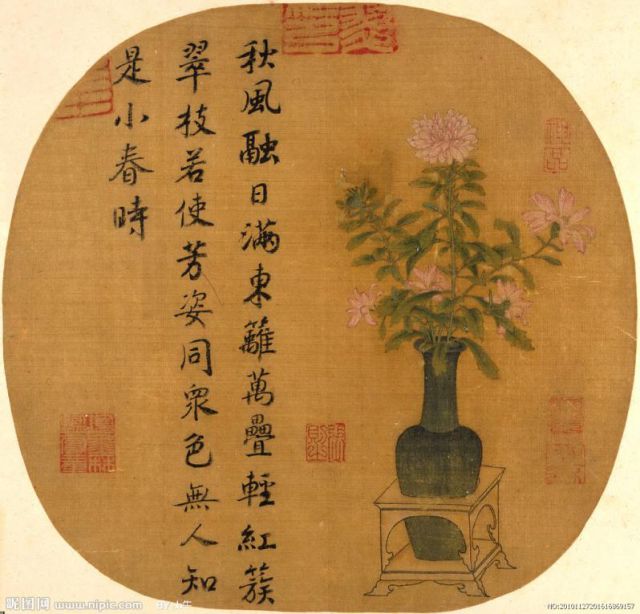 秋風融日滿東籬萬疊輕紅簇
翠枝若使芳姿同衆色無人知
是小春時
昵图网 www.nipic.com
NO:20101127201616869157